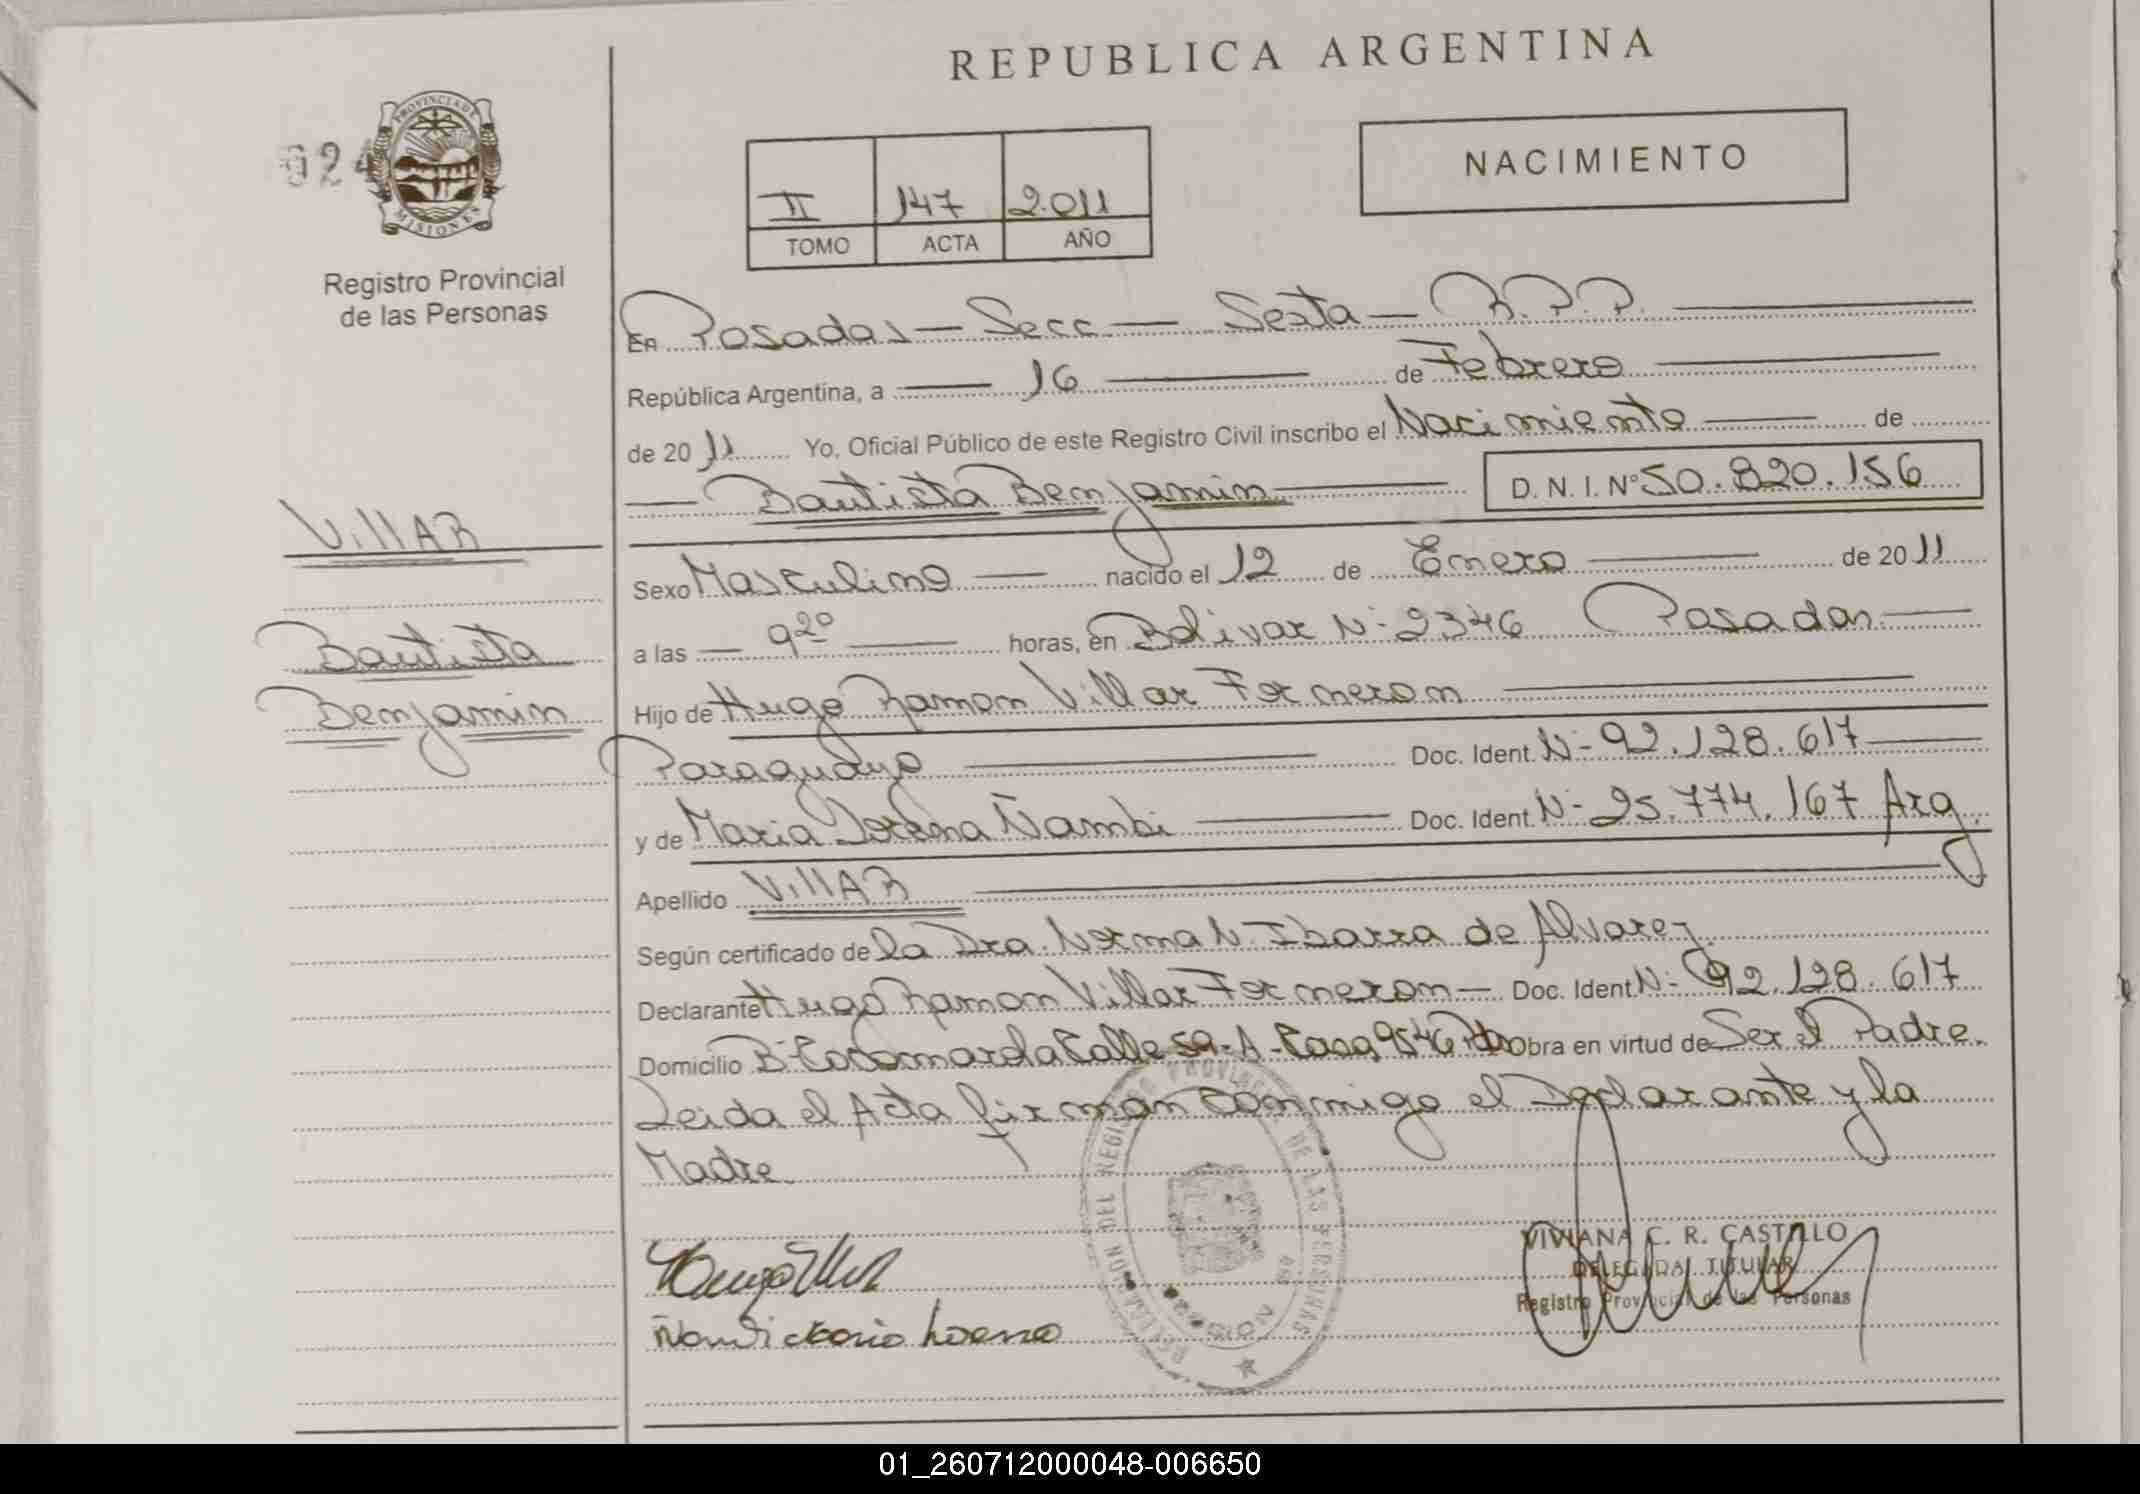 REPUBLICA ARGENTINA
024
PROVINCIA DE
MISIONES
Registro Provincial
de las Personas
NACIMIENTO
II 147 2.011
TOMO ACTA AÑO
En Posadas — Secc — Sexta — R.P.P.
República Argentina, a — 16 — de Febrero
de 20 11 Yo, Oficial Público de este Registro Civil inscribo el Nacimiento — de
— Bautista Benjamin — D. N. I. Nº 50.820.156
VillAR
Bautista
Benjamin
Sexo Masculino — nacido el 12 de Enero — de 20 11
a las — 9 20 — horas, en Bolivar N- 2346 Posadas —
Hijo de Hugo Ramon Villar Formeron —
Paraguayo — Doc. Ident. N- 92.128.617 —
y de Maria Lorena Ñambi — Doc. Ident. N- 25.774.167 Arg.
Apellido VillAR —
Según certificado de la Dra. Norma N. Ibarra de Alvarez
Declarante Hugo Ramon Villar Formeron — Doc. Ident. N- 92.128.617
Domicilio B- Cocomarola Calle 59-A-Casa 9546 Pdas Obra en virtud de Ser el Padre.
Leida el Acta firman conmigo el Declarante y la
Madre.
DELEGACION DEL REGISTRO PROVINCIAL DE LAS PERSONAS
VIVIANA C. R. CASTILLO
DELEGADA TITULAR
Registro Provincial de las Personas
01_260712000048-006650